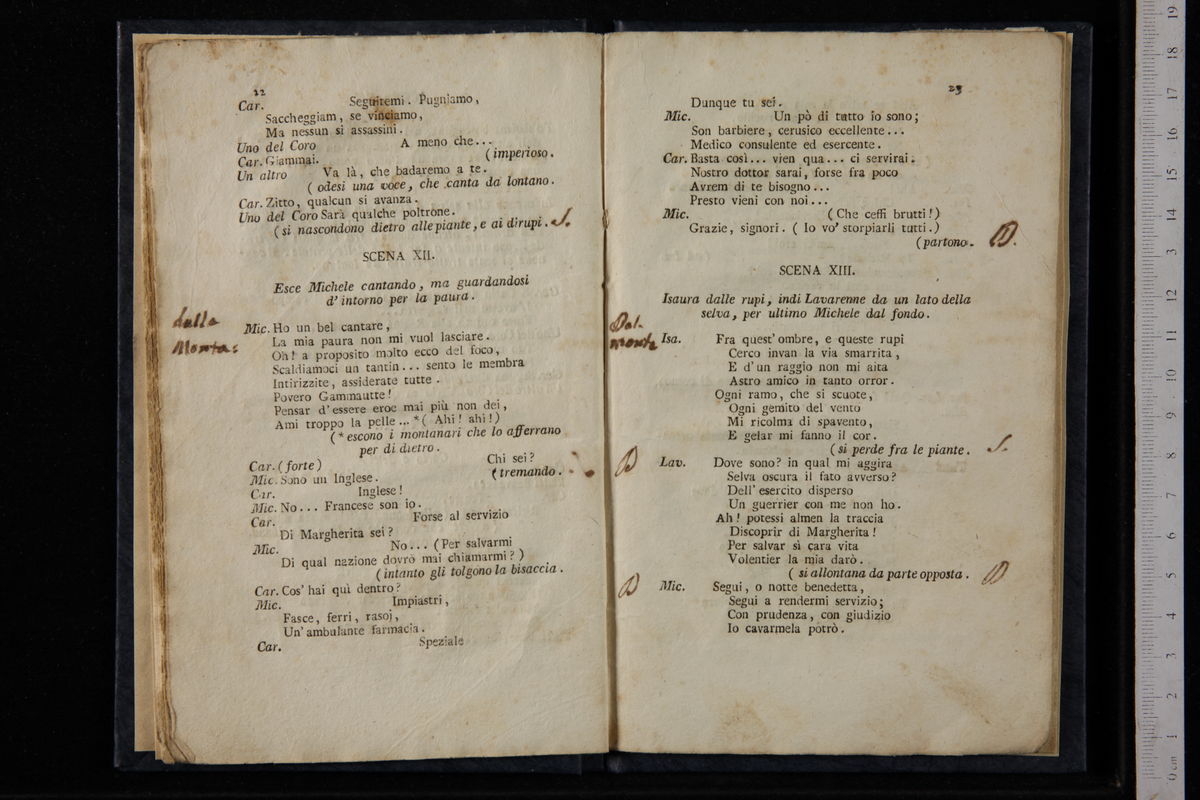 22
Car. Seguiremi. Pugniamo,
Saccheggiam, se vinciamo,
Ma nessun si assassini.
Uno del Coro A meno che...
Car. Giammai. (imperioso.
Un altro Va là, che badaremo a te.
( odesi una voce, che canta da lontano.
Car. Zitto, qualcun si avanza.
Uno del Coro Sarà qualche poltrone.
(si nascondono dietro alle piante, e ai dirupi. S.
SCENA XII.
Esce Michele cantando, ma guardandosi
d'intorno per la paura.
dalla
Monta:
Mic. Ho un bel cantare,
La mia paura non mi vuol lasciare.
Oh! a proposito molto ecco del foco,
Scaldiamoci un tantin... sento le membra
Intirizzite, assiderate tutte.
Povero Gammautte!
Pensar d'essere eroe mai più non dei,
Ami troppo la pelle... *( Ahi! ahi!)
(* escono i montanari che lo afferrano
per di dietro.
Car. (forte) Chi sei?
Mic. Sono un Inglese. (tremando.
Car. Inglese!
Mic. No... Francese son io.
Car. Forse al servizio
Di Margherita sei?
Mic. No... (Per salvarmi
Di qual nazione dovrò mai chiamarmi?)
(intanto gli tolgono la bisaccia.
Car. Cos' hai quì dentro?
Mic. Impiastri,
Fasce, ferri, rasoj,
Un' ambulante farmacia.
Car. Speziale
23
Dunque tu sei.
Mic. Un pò di tutto io sono;
Son barbiere, cerusico eccellente...
Medico consulente ed esercente.
Car. Basta così... vien qua... ci servirai.
Nostro dottor sarai, forse fra poco
Avrem di te bisogno...
Presto vieni con noi...
Mic. (Che ceffi brutti!)
Grazie, signori. ( Io vo' storpiarli tutti.)
(partono. D.
SCENA XIII.
Isaura dalle rupi, indi Lavarenne da un lato della
selva, per ultimo Michele dal fondo.
Dal
monte
Isa. Fra quest' ombre, e queste rupi
Cerco invan la via smarrita,
E d'un raggio non mi aita
Astro amico in tanto orror.
Ogni ramo, che si scuote,
Ogni gemito del vento
Mi ricolma di spavento,
E gelar mi fanno il cor.
(si perde fra le piante. S.
D Lav. Dove sono? in qual mi aggira
Selva oscura il fato avverso?
Dell' esercito disperso
Un guerrier con me non ho.
Ah! potessi almen la traccia
Discoprir di Margherita!
Per salvar sì cara vita
Volentier la mia darò.
( si allontana da parte opposta. D
D Mic. Segui, o notte benedetta,
Segui a rendermi servizio;
Con prudenza, con giudizio
Io cavarmela potrò.